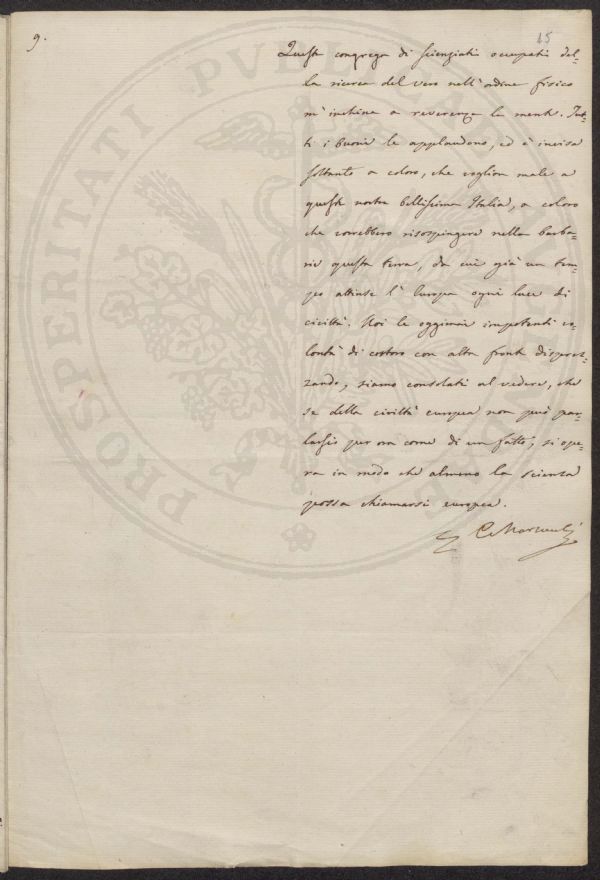 9.
15
Questa congrega di scienziati occupati del-
la ricerca del vero nell'ordine fisico
m'inchina a reverenza la mente. Tut-
ti i buoni le applaudono, ed è invisa
soltanto a coloro, che voglion male a
questa nostra bellissima Italia, a coloro
che vorrebbero risospingere nella barba-
rie questa terra, da cui già un tem-
po attinse l'Europa ogni luce di
civiltà. Noi le oggimai impotenti vo-
lontà di costoro con alta fronte disprez-
zando, siamo consolati al vedere, che
se della civiltà europea non può par-
larsi per ora come di un fatto, si ope-
ra in modo che almeno la scienza
possa chiamarsi europea.
PROSPERITATI PUBLICAE